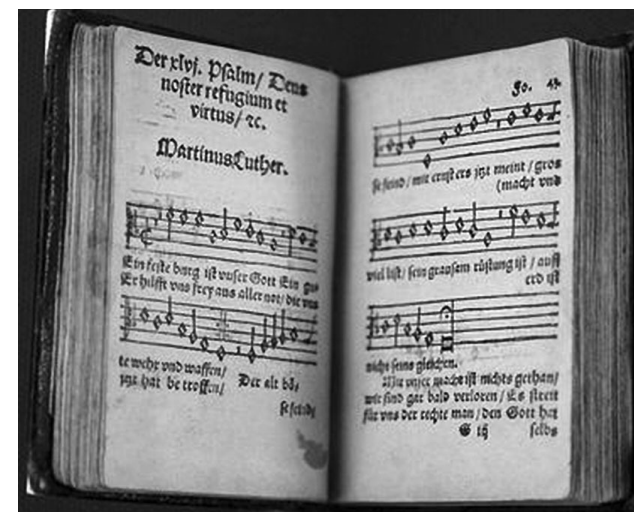 Der xlvj. Psalm/ Deus
noster refugium et
virtus/ ⁊c.
Martinus Luther.
Ein feste burg ist vnser Gott Ein gu
Er hilfft vns frey aus aller not/ die vns
te wehr vnd waffen/
jtzt hat be troffen/ Der alt bö,
se feindt
Fo. 43.
se feind/ mit ernst ers jzt meint/ gros
(macht vnd
viel list/ sein grausam rüstung ist/ auff
erd ist
nicht seins gleichen.
Mit vnser macht ist nichts gethan/
wir sind gar bald verloren/ Es streit
für vns der rechte man/ den Gott hat
G iij selbs